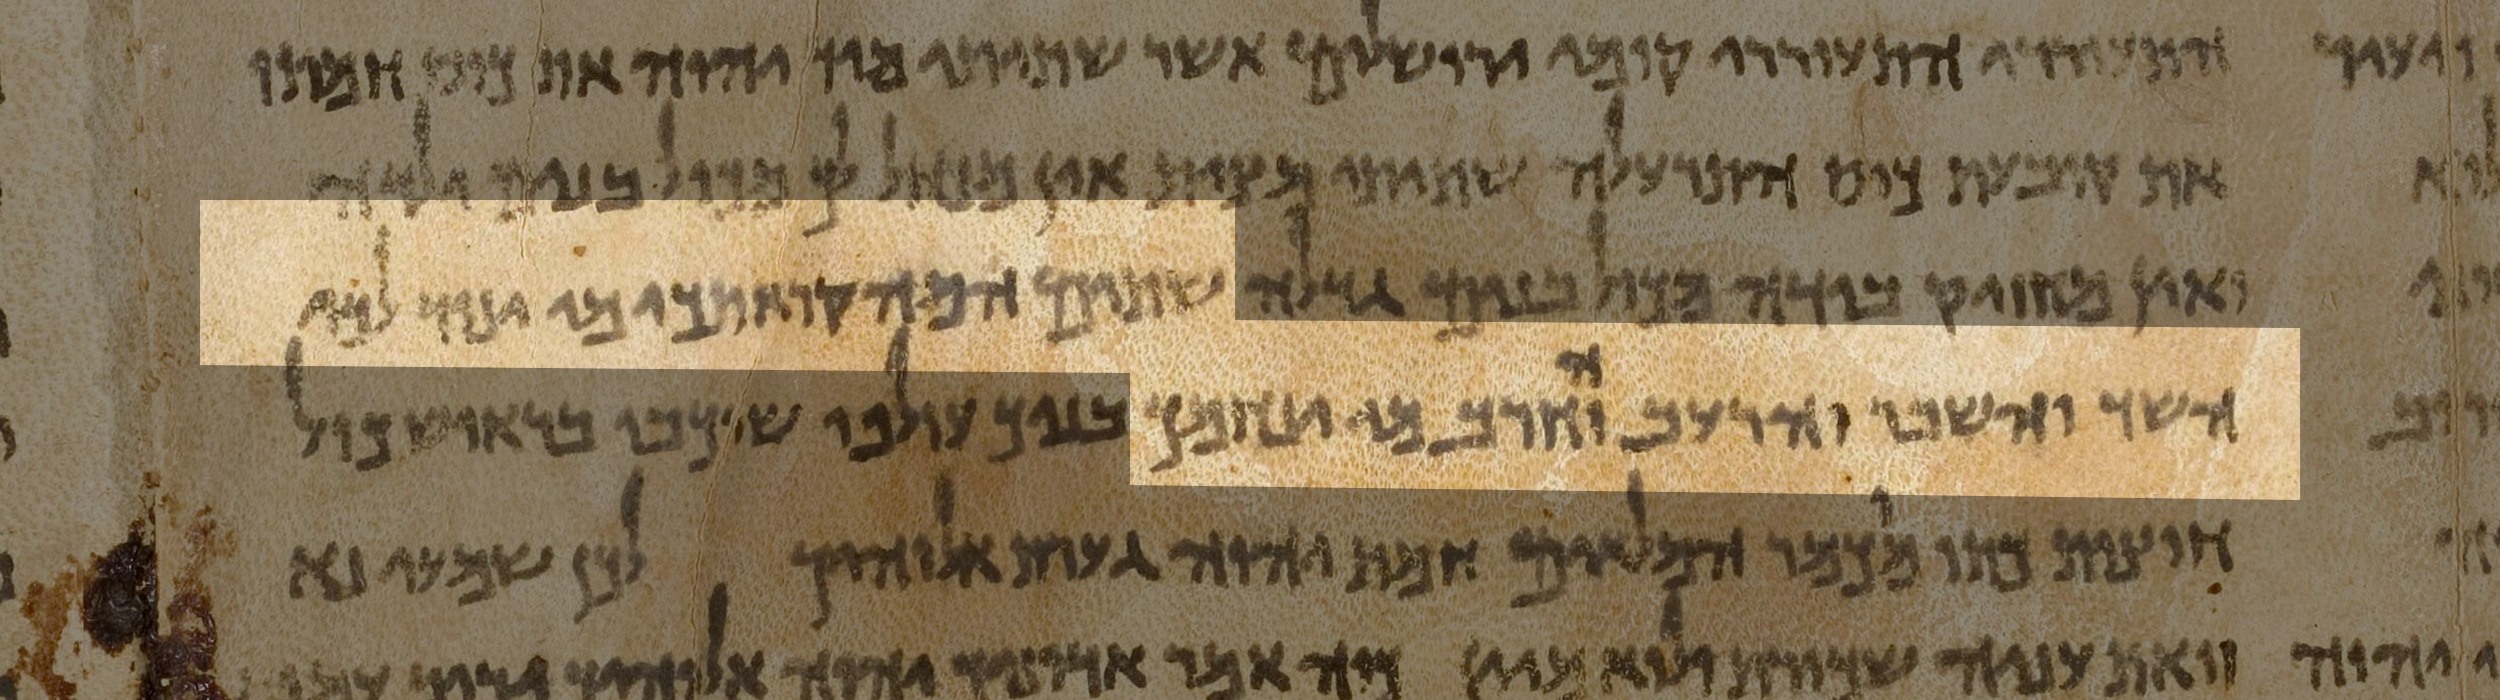 התעוררי התעוררי קומי ירושלים אשר שתיתי מיד יהוה את כוס חמתו
את קבעת כוס התרעלה שתיתי מצית אין מנהל לך מכול בניך ילדה
ואין מחזיק בידה מכול בנים גדלה שתים המה קוראתיכי מי ינוד לכי
השד והשבר והרעב והחרב מי ינחמך בניך עולפו שוכבו בראוש כול
חוצות כתו מכומר המלאים חמת יהוה גערת אלוהיך לכן שמעי נא
זואת עניה שכורת ולוא מיין כוה אמר אדוניך יהוה אלוהיך